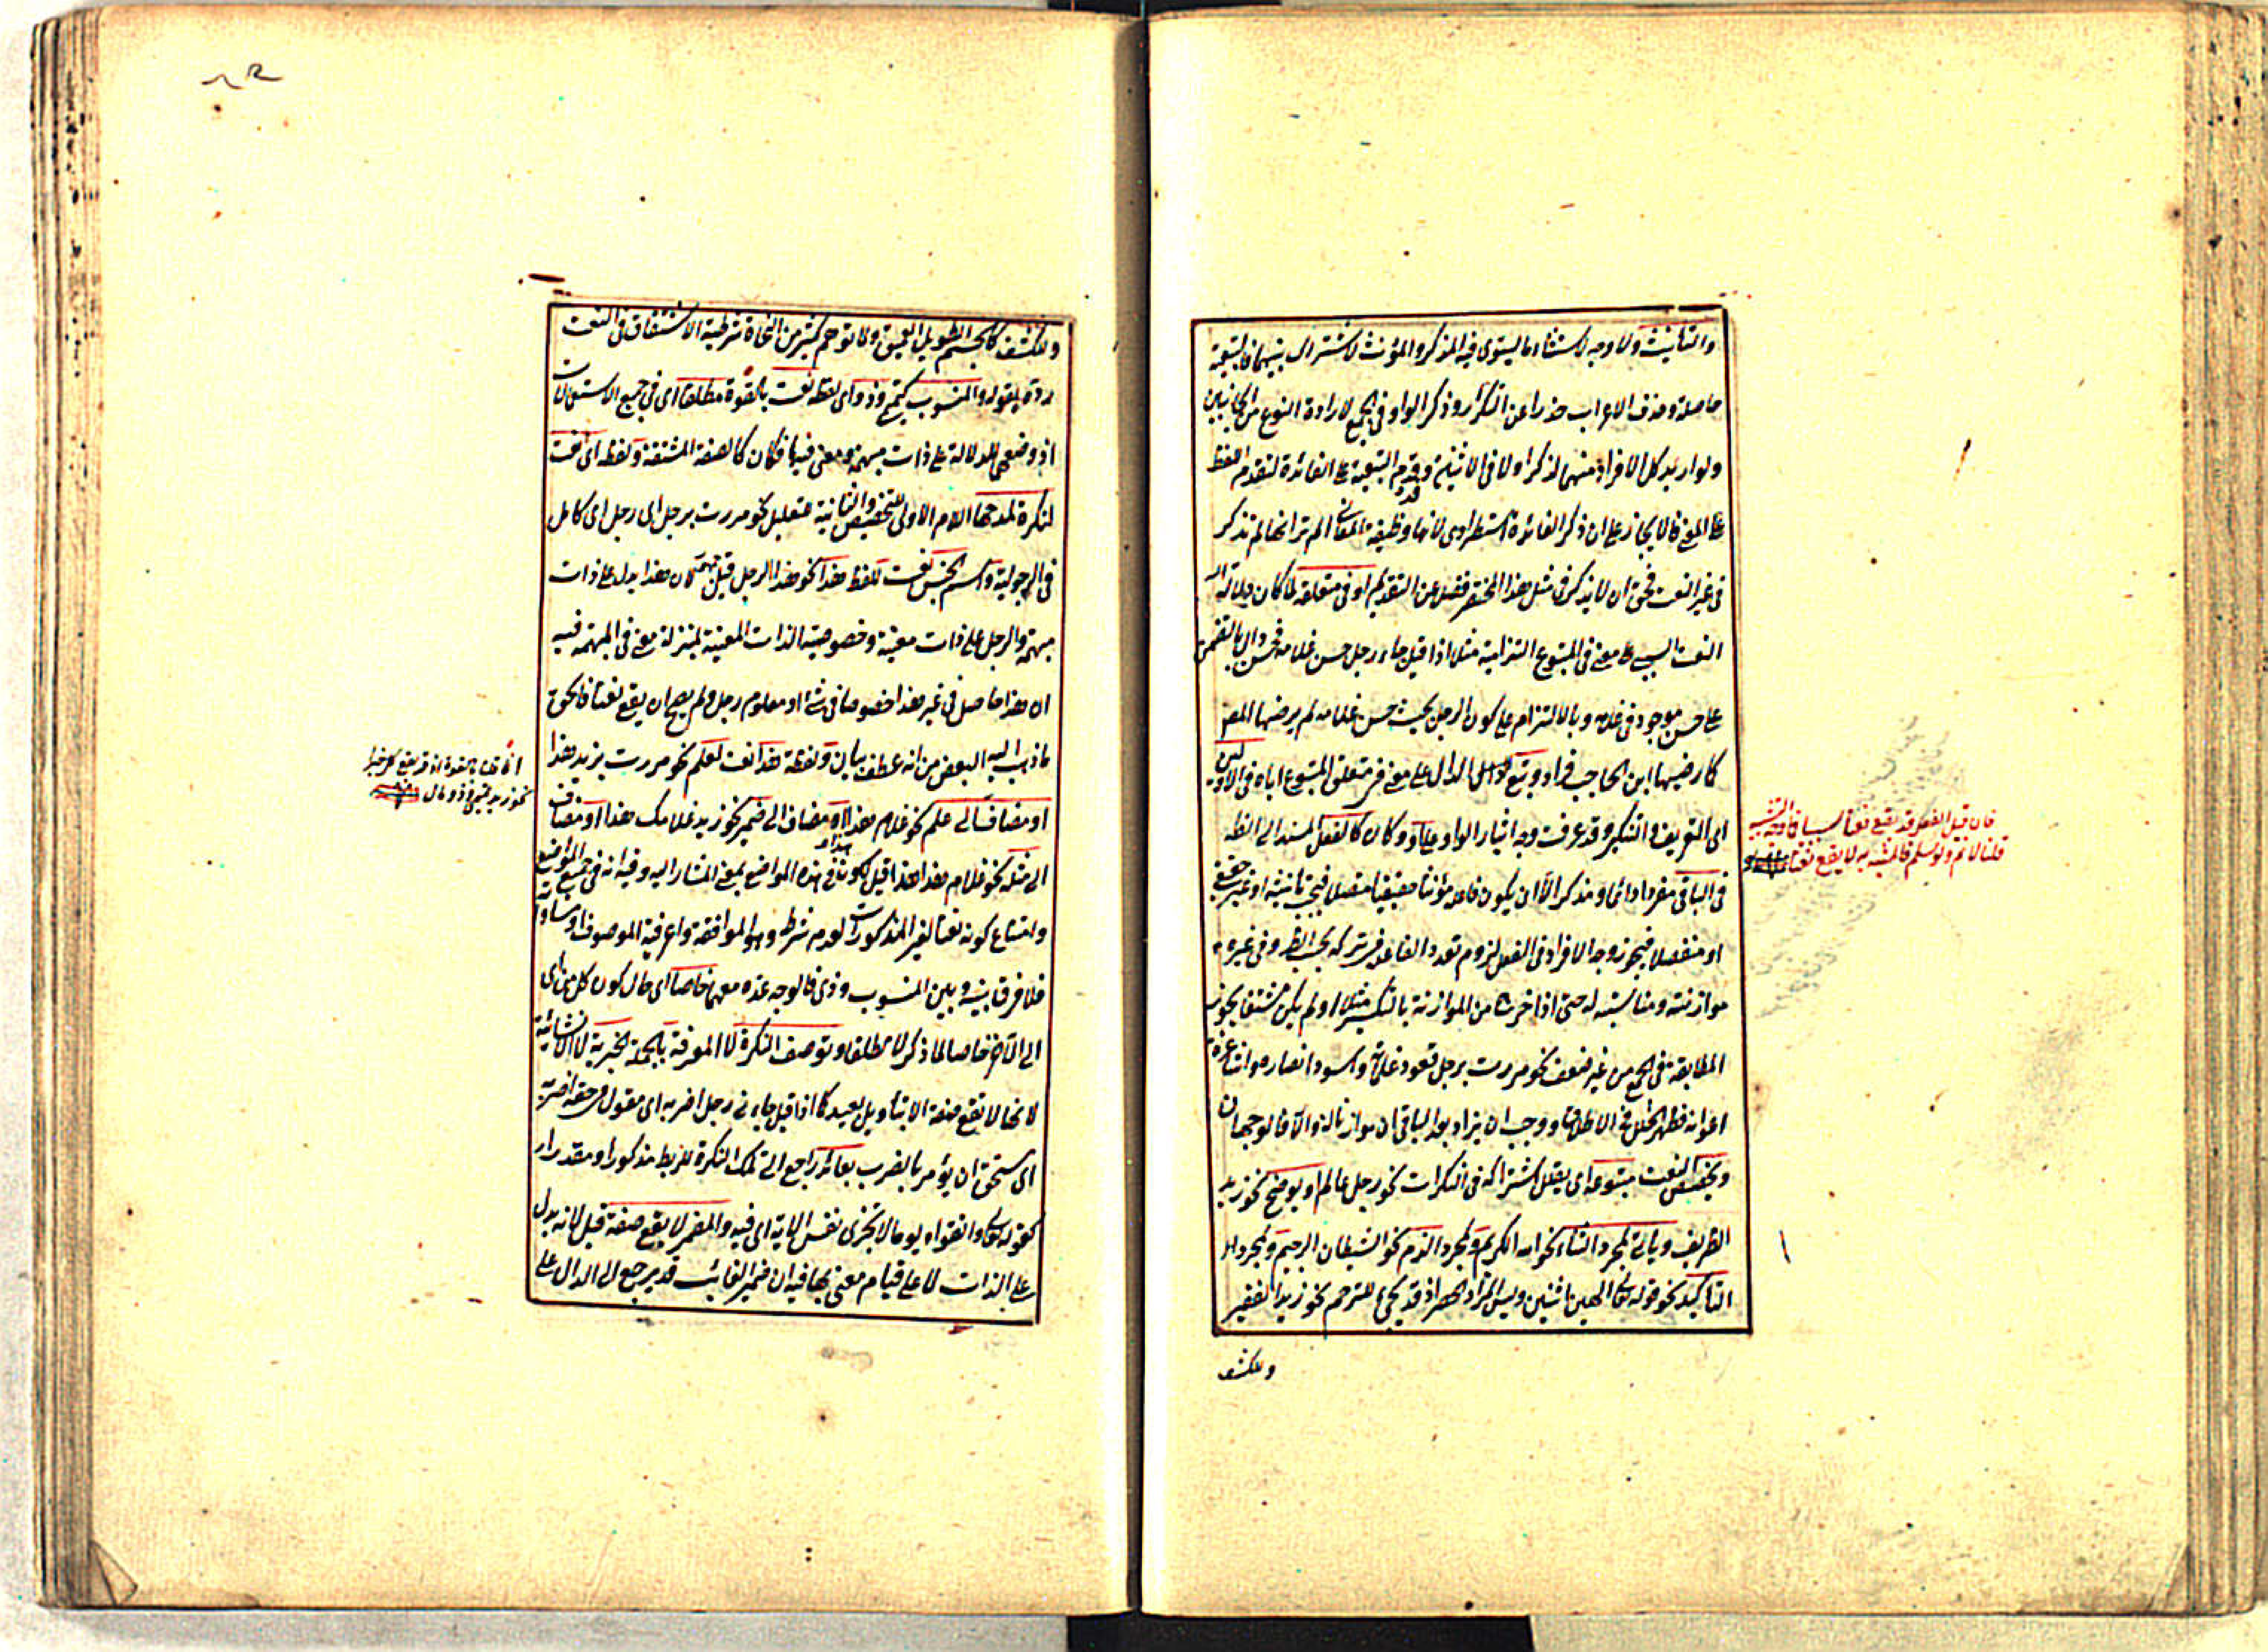 والتانيث ولا وجه لاستثناء ما يستوى فيه المذكر والمؤنث لاشتراك بينهما فالتبعية
حاصلة وحذف الاعراب حذرا عن التكرار وذكر الواو فى الجمع لارادة النوع من الجانبين
ولو اريد كل الافراد منهما لذكر او لا فى الاثنين وقدم التبعية على الفائدة لتقدم اللفظ
على المعنى فالايجاز على ان ذكر الفائدة استطرادى لانها وظيفة المعانى الم تر انها لم تذكر
فى غير النعت فحق ان لا يذكر فى مثل هذا المختصر فضلا عن التقديم او فى متعلقه لما كان دلالة
النعت السببى على معنى فى المتبوع التزامية مثلا اذا قيل جاء رجل حسن غلامه فحسن دال بالتضمن
على حسن موجود فى غلامه وبالالتزام على كون الرجل بحيث حسن غلامه لم يرضها المص
كما رضيها ابن الحاجب فزاد ويتبع الدال على معنى فى متعلق المتبوع اياه فى الاول
اى التعريف والتنكير وقد عرفت وجه ايثار الواو على او وكان كالفعل المسند الى الظه
فى الباقى مفردا دائما ومذكرا الا ان يكون فاعله مؤنثا حقيقيا متصلا فيجب تانيثه او غير حقيقى
او منفصلا فيجوز وجه الافراد فى الفعل لزوم تعدد الفاعل فى تركه بحسب الظ وفى غيره
موازنته ومناسبته له حتى اذا خرج من الموازنة بالتكسير مثلا او لم يكن مشتقا يجوز
المطابقة فى الجمع من غير ضعف نحو مررت برجل قعود غلمانه واسود انصاره
اعوانه فظهر الخلل فى الاطلاق ووجب ان يزاد بعد الباقى ان موازنا له والا فالوجهان
ويخصص النعت متبوعه اى يقلل اشتراكه فى النكرات نحو رجل عالم او يوضح نحو زيد
الظريف وياتى لمجرد الثناء نحو الله الكريم ولمجرد الذم نحو الشيطان الرجيم ولمجرد
التاكيد نحو قوله تعالى الهين اثنين وليس المراد الحصر اذ قد يجئ للترحم نحو زيد الفقير
وللكشف
فان قيل الفعل قد يقع نعتا سببيا فاوجه التشبيه
قلنا لا نم ولو سلم فالمشبه به لا يقع نعتا
وللكشف كالجسم الطويل العميق ولما توهم كثير من النحاة شرطية الاشتقاق فى النعت
رده بقوله والمنسوب كتميمى وذو اى لفظه نعت بالقوة مطلقا اى فى جميع الاستعمالات
اذ وضعهما للدلالة على ذات مبهمة ومعنى فيها فكان كالصفة المشتقة ولفظ اى نعت
لنكرة لمدحها اللام الاولى للتخصيص والثانية للتعليل نحو مررت برجل اى رجل اى كامل
فى الرجولية واسم الجنس نعت للفظ هذا نحو هذا الرجل قيل لان هذا يدل على ذات
مبهمة والرجل على ذات معينة وخصوصية الذات المعينة بمنزلة معنى فى المبهمة فيه
ان هذا حاصل فى غير هذا خصوصا فى شئ او معلوم رجل ولم يصح ان يقع نعتا فالحق
ما ذهب اليه البعض من انه عطف بيان ولفظة هذا نعت لعلم نحو مررت بزيد هذا
او مضاف الى علم نحو غلام هذا او مضاف الى ضمير نحو زيد غلامك هذا او مضاف
الى مثله نحو غلام هذا هذا قيل لكونه فى هذه المواضع بمعنى المشار اليه وفيه انه فى جميع المواضع
وامتناع كونه نعتا لغير المذكورات لعدم شرطه وهو الموافقة واعرفية الموصوف او مساواته
فلا فرق بينه وبين المنسوب وذى فالوجه عده معهما خاصا اى حال كون كل من اى
الى الآخر خاصا لما ذكر لا مطلقا وتوصف النكرة لا المعرفة بالجملة الخبرية لا الانشائية
لانها لا تقع صفة الا بتاويل بعيد كما اذا قيل جاءنى رجل اضربه اى مقول فى حقه اضربه
اى يستحق ان يؤمر بالضرب بعائد راجع الى تلك النكرة للربط مذكورا او مقدرا
كقوله تعالى واتقوا يوما لا تجزى نفس الاية اى فيه والمضمر لا يقع صفة قيل لانه يدل
على الذات لا على قيام معنى بها فيه ان ضمير الغائب قد يرجع الى الدال على